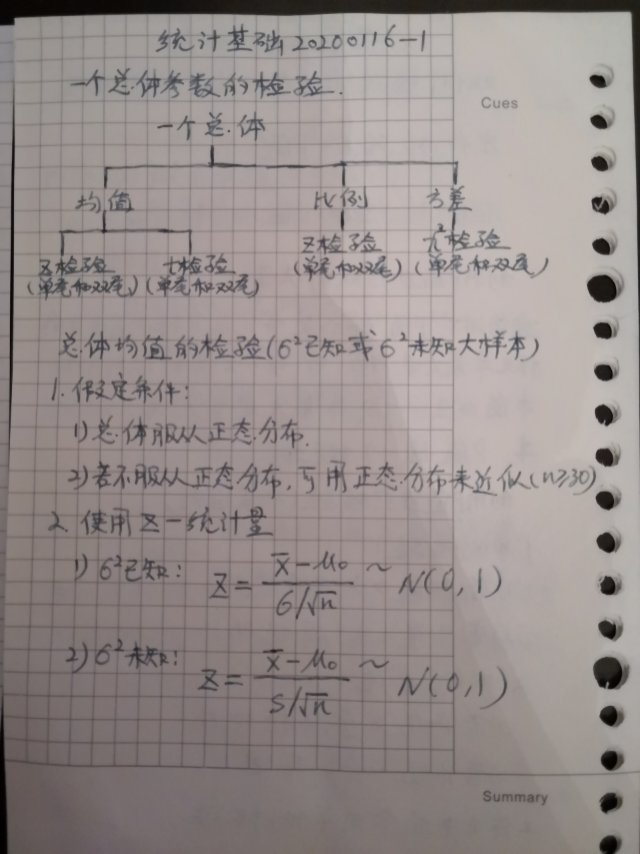 统计基础20200116-1
一个总体参数的检验.
Cues
一个总体
均值 比例 方差
z检验 t检验 z检验 χ²检验
(单尾和双尾) (单尾和双尾) (单尾和双尾) (单尾和双尾)
总体均值的检验(σ²已知或σ²未知大样本)
1. 假定条件:
1) 总体服从正态分布.
2) 若不服从正态分布, 可用正态分布来近似(n≥30)
2. 使用z-统计量
1) σ²已知: z = (x̄-μ₀)/(σ/√n) ~ N(0,1)
2) σ²未知: z = (x̄-μ₀)/(s/√n) ~ N(0,1)
Summary